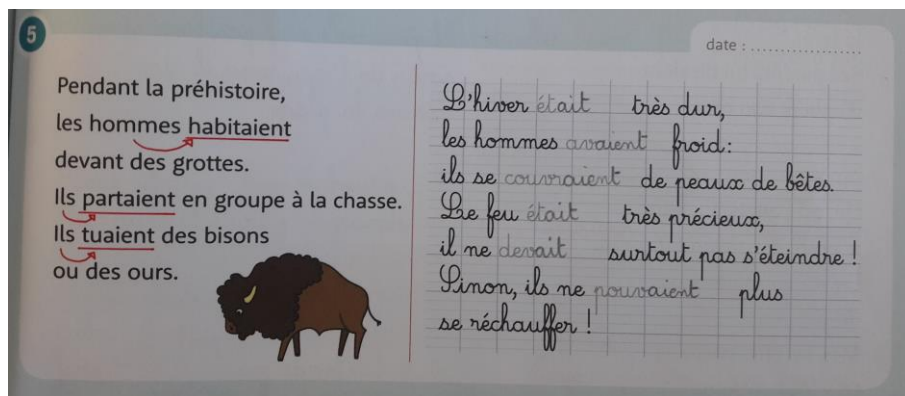 5
date : ....................
Pendant la préhistoire,
les hommes habitaient
devant des grottes.
Ils partaient en groupe à la chasse.
Ils tuaient des bisons
ou des ours.
L'hiver était très dur,
les hommes avaient froid :
ils se couvraient de peaux de bêtes.
Le feu était très précieux,
il ne devait surtout pas s'éteindre !
Sinon, ils ne pouvaient plus
se réchauffer !